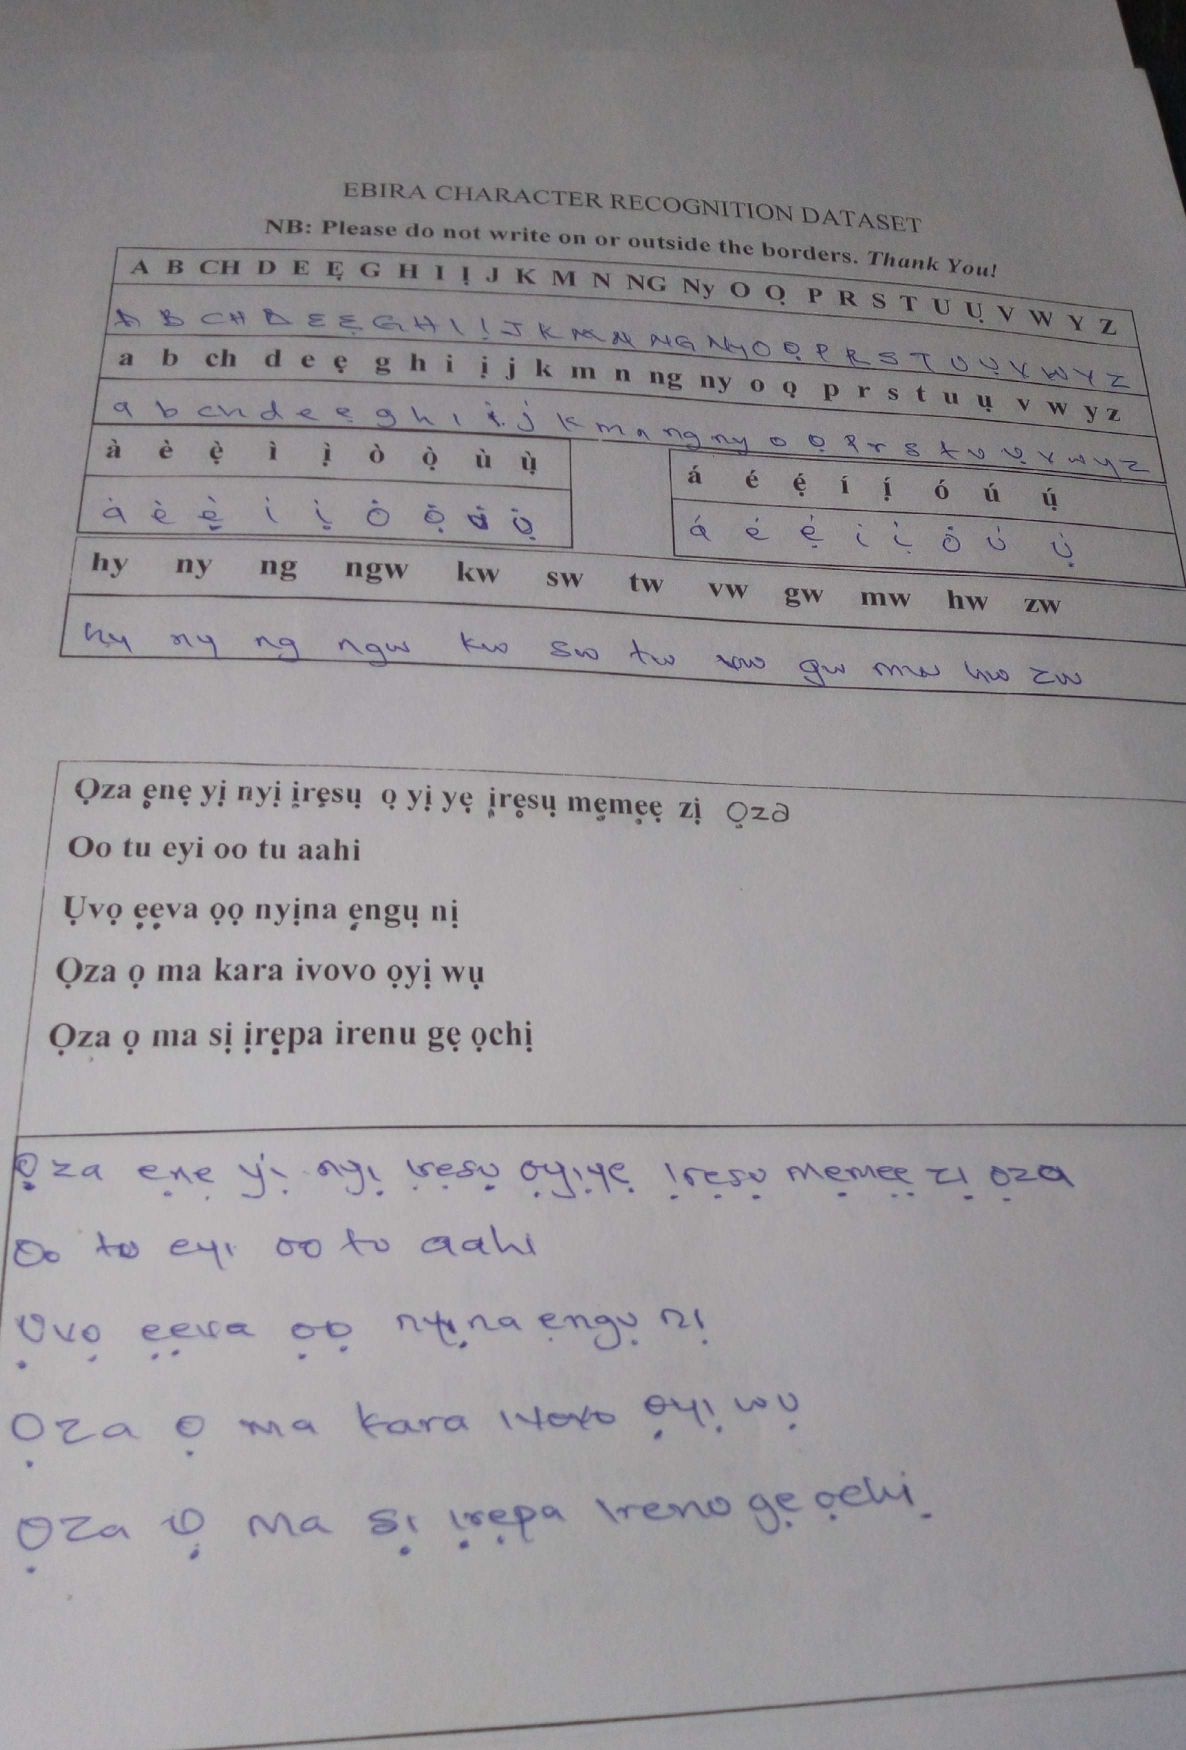 EBIRA CHARACTER RECOGNITION DATASET
NB: Please do not write on or outside the borders. Thank You!
A B CH D E Ẹ G H I Ị J K M N NG Ny O Ọ P R S T U Ụ V W Y Z
A B CH D E Ẹ G H I Ị J K M N NG Ny O Ọ P R S T U Ụ V W Y Z
a b ch d e ẹ g h i ị j k m n ng ny o ọ p r s t u ụ v w y z
a b ch d e ẹ g h i ị j k m n ng ny o ọ p r s t u ụ v w y z
à è ẹ̀ ì ị̀ ò ọ̀ ù ụ̀ á é ẹ́ í ị́ ó ú ụ́
à è ẹ̀ ì ị̀ ò ọ̀ ù ụ̀ á é ẹ́ í ị́ ó ú ụ́
hy ny ng ngw kw sw tw vw gw mw hw zw
hy ny ng ngw kw sw tw vw gw mw hw zw
Ọza ẹnẹ yị nyị ịrẹsụ ọ yị yẹ ịrẹsụ mẹmẹẹ zị Ọza
Oo tu eyi oo tu aahi
Ụvọ ẹẹva ọọ nyịna ẹngụ nị
Ọza ọ ma kara ivovo ọyị wụ
Ọza ọ ma sị ịrẹpa irenu gẹ ọchị
Ọza ẹnẹ yị nyị ịrẹsụ ọyịyẹ ịrẹsụ mẹmẹẹ zị ọza
Oo tu eyi oo tu aahi
Ụvọ ẹẹva ọọ nyịna ẹngụ nị
Ọza ọ ma kara ivovo ọyị wụ
Ọza ọ ma sị ịrẹpa irenu gẹ ọchị